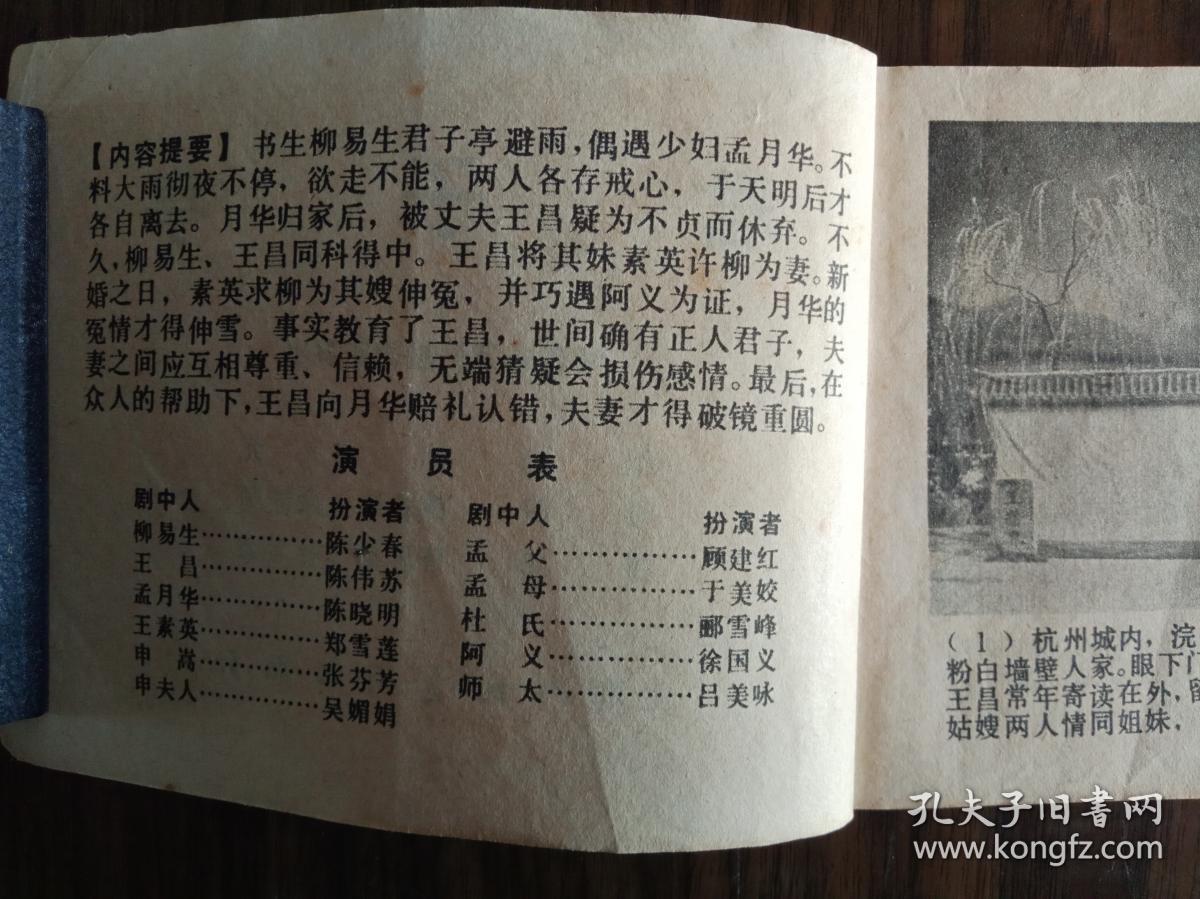 【内容提要】 书生柳易生君子亭避雨，偶遇少妇孟月华。不
料大雨彻夜不停，欲走不能，两人各存戒心，于天明后才
各自离去。月华归家后，被丈夫王昌疑为不贞而休弃。不
久，柳易生、王昌同科得中。王昌将其妹素英许柳为妻。新
婚之日，素英求柳为其嫂伸冤，并巧遇阿义为证，月华的
冤情才得伸雪。事实教育了王昌，世间确有正人君子，夫
妻之间应互相尊重、信赖，无端猜疑会损伤感情。最后，在
众人的帮助下，王昌向月华赔礼认错，夫妻才得破镜重圆。
演 员 表
剧中人 扮演者 剧中人 扮演者
柳易生……………陈少春 孟 父……………顾建红
王 昌……………陈伟苏 孟 母……………于美姣
孟月华……………陈晓明 杜 氏……………郦雪峰
王素英……………郑雪莲 阿 义……………徐国义
申 嵩……………张芬芳 师 太……………吕美咏
申夫人……………吴媚娟
（1）杭州城内，浣
粉白墙壁人家。眼下门
王昌常年寄读在外，
姑嫂两人情同姐妹，
孔夫子旧书网
www.kongfz.com